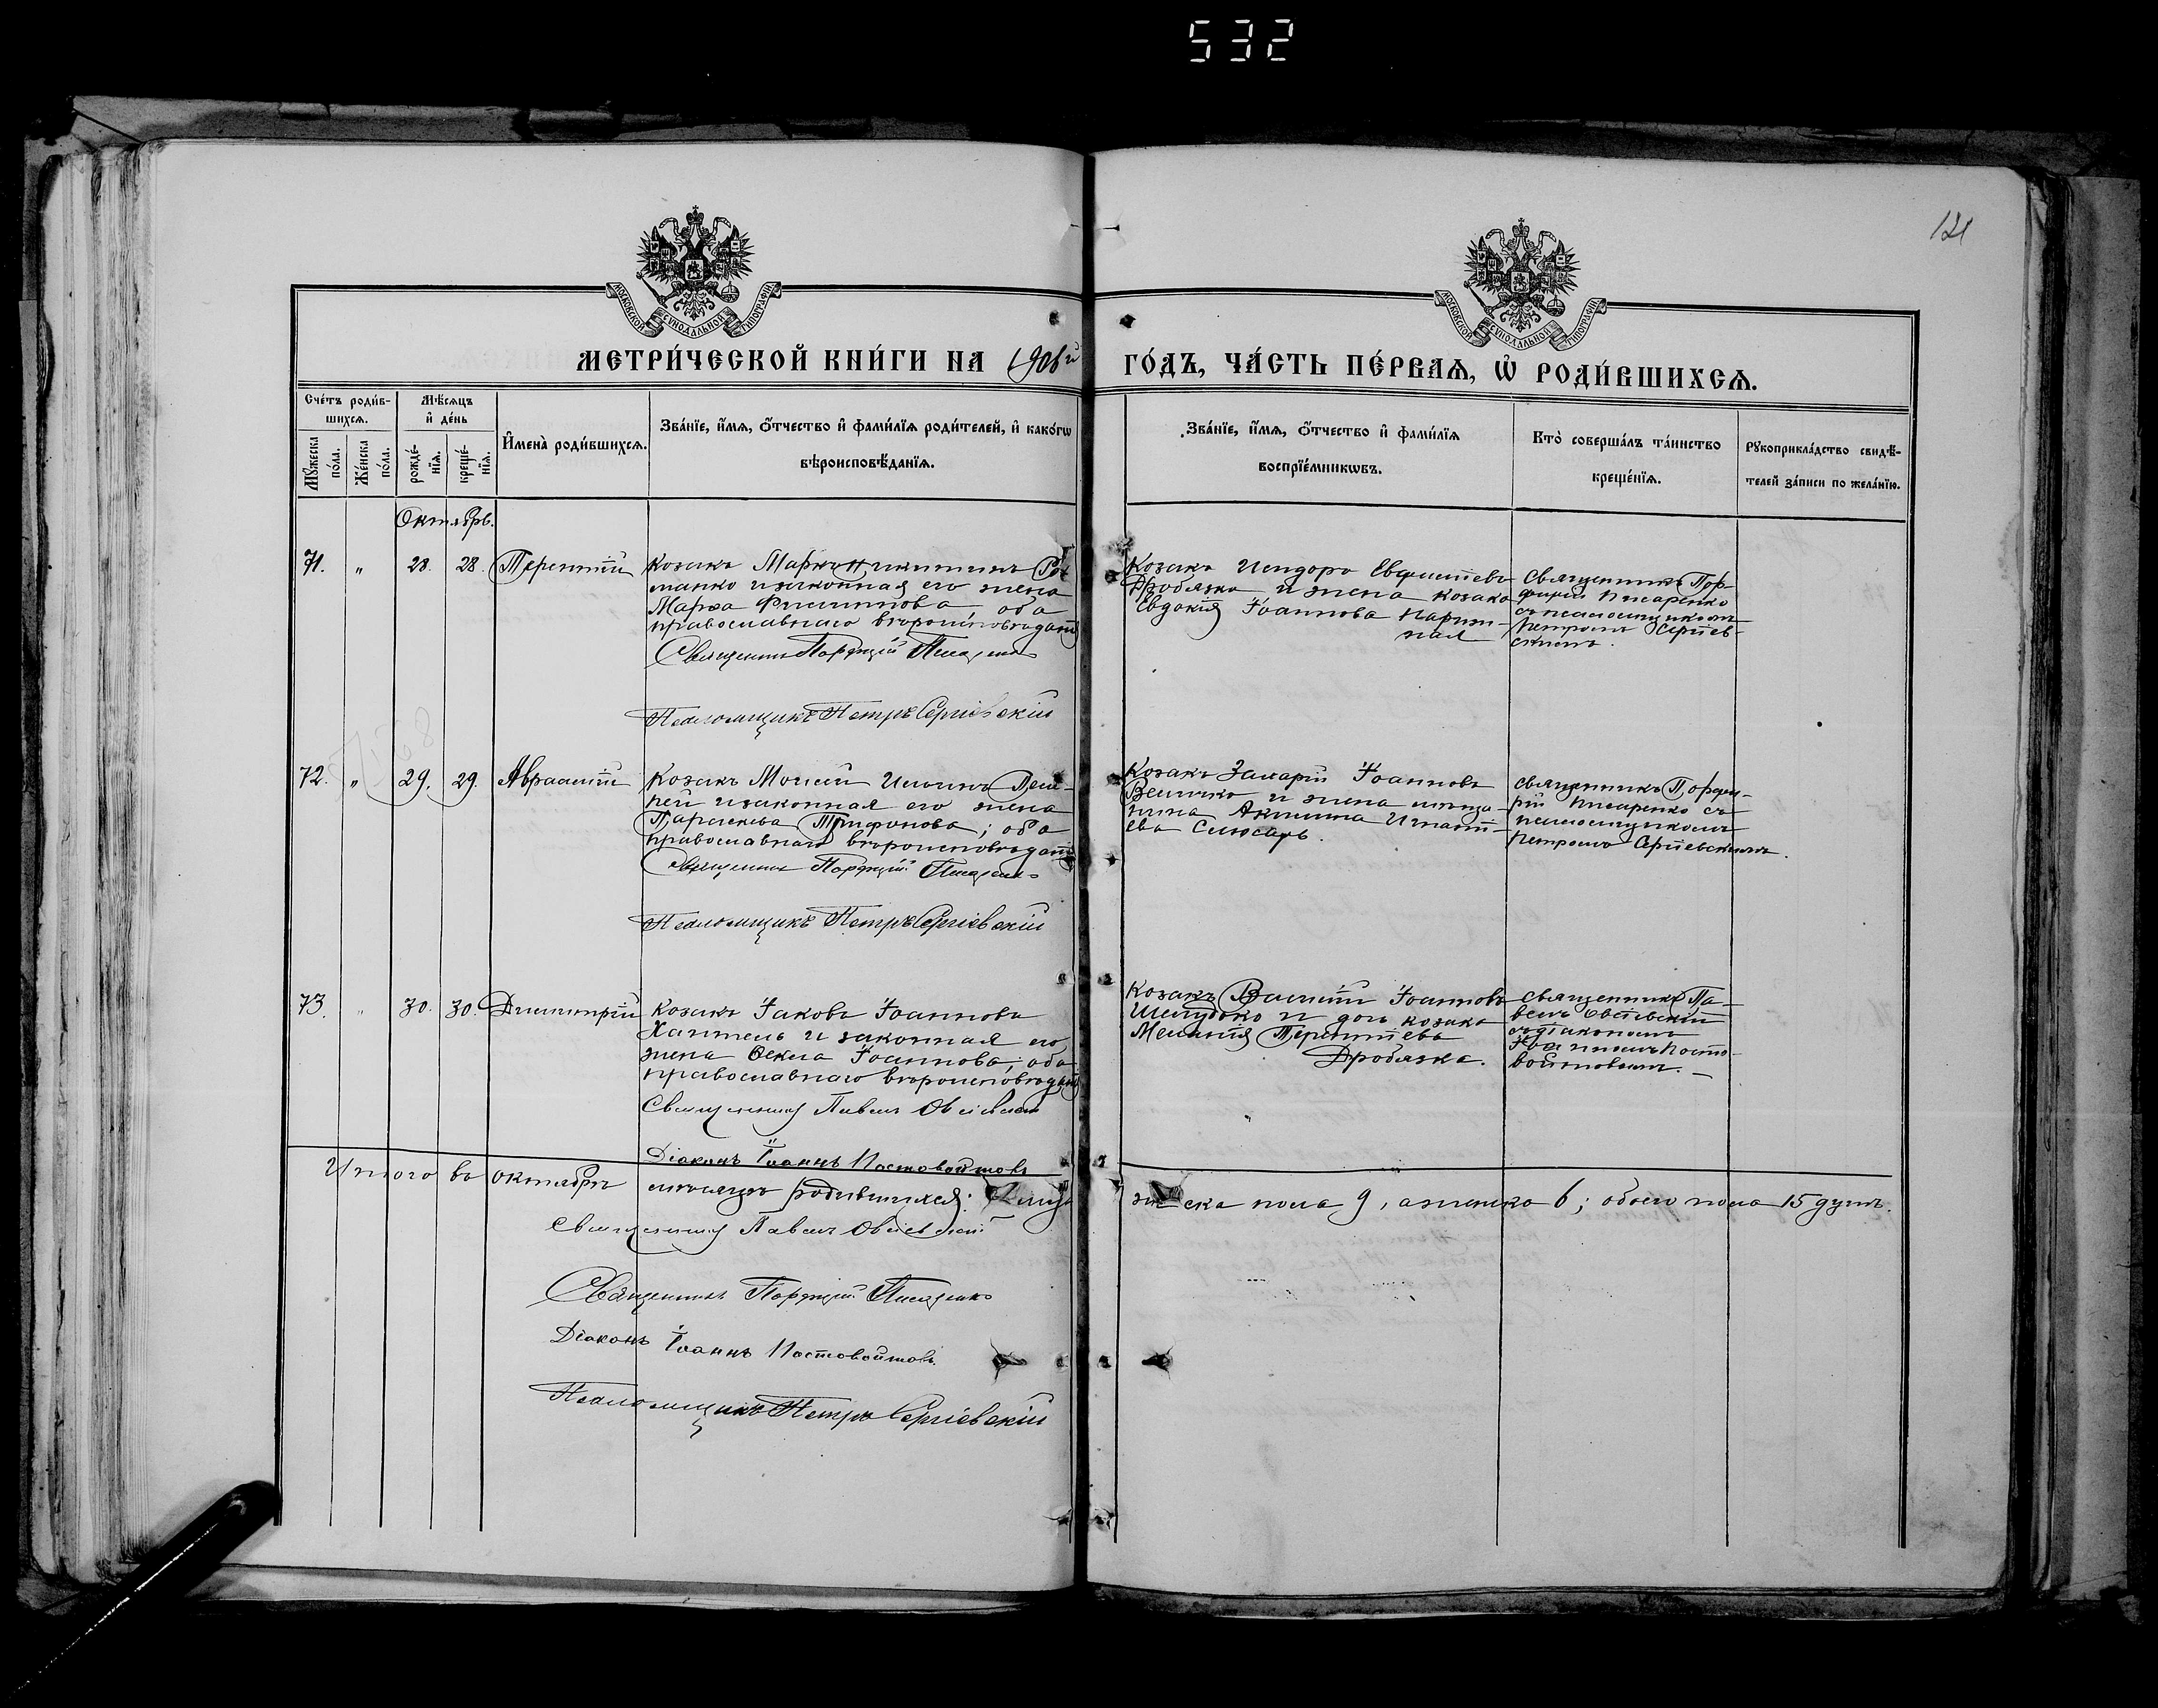 532
121
МОСКОВСКОЙ СѴНОДАЛЬНОЙ ТИПОГРАФІИ
МОСКОВСКОЙ СѴНОДАЛЬНОЙ ТИПОГРАФІИ
МЕТРИ́ЧЕСКОЙ КНИ́ГИ НА 1906й ГО́ДЪ, ЧА́СТЬ ПЕ́РВАѦ, Ѡ҆ РОДИ́ВШИХСѦ.
Сче́тъ роди́в-
шихсѧ.
Мꙋ́жеска по́ла.
Же́нска по́ла.
Мѣ́сѧцъ
и҆ де́нь
рожде́-
нїѧ.
креще́-
нїѧ.
И҆мена̀ роди́вшихсѧ.
Зва́нїе, и҆́мѧ, ѻ҆́тчество и҆ фами́лїѧ роди́телей, и҆ како́гѡ
вѣроисповѣ́данїѧ.
Зва́нїе, и҆́мѧ, ѻ҆́тчество и҆ фами́лїѧ
воспрїе́мникѡвъ.
Кто̀ соверша́лъ та́инство
креще́нїѧ.
Рꙋкоприкла́дство свидѣ́-
телей за́писи по жела́нїю.
Октябрь.
71. „ 28. 28. Терентій
Козакъ Марко Никитинъ Ро-
манко и законная его жена
Марѳа Филиппова, оба
православнаго вѣроисповѣданія
Священникъ Порфирій Писаренко
Псаломщикъ Петръ Сергіевскій
Козакъ Исидоръ Евфиміевъ
Дробязко и жена козака
Евдокія Іоаннова
Священникъ Пор-
фирій Писаренко
съ псаломщикомъ
Петромъ Сергіев-
скимъ.
72. „ 29. 29. Аврамій
Козакъ Моисей Ильинъ
и законная его жена
Параскева Трифонова; оба
православнаго вѣроисповѣданія
Священникъ Порфирій Писаренко
Псаломщикъ Петръ Сергіевскій
Козакъ Захарій Іоанновъ
Величко и жена мѣща-
нина Акилина Игнаті-
ева Слюсарь.
Священникъ Порфи-
рій Писаренко съ
псаломщикомъ
Петромъ Сергіевскимъ.
73. „ 30. 30. Димитрій
Козакъ Іаковъ Іоанновъ
и законная его
жена Ѳекла Іоаннова; оба
православнаго вѣроисповѣданія
Священникъ Павелъ
Діаконъ Іоаннъ Постовойтовъ
Козакъ Василій Іоанновъ
Шелудько и дочь козака
Меланія Терентіева
Дробязка.
Священникъ Па-
велъ
съ діакономъ
Іоанномъ Посто-
войтовымъ.
Итого въ октябрѣ мѣсяцѣ родившихся: мужеска пола 9, а женска 6; обоего пола 15 душъ.
Священникъ Павелъ
Священникъ Порфирій Писаренко
Діаконъ Іоаннъ Постовойтовъ.
Псаломщикъ Петръ Сергіевскій